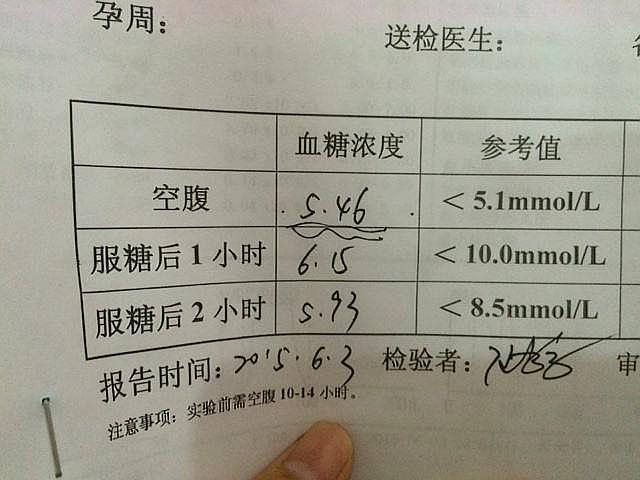 孕周： 送检医生：
血糖浓度 参考值
空腹 5.46 < 5.1mmol/L
服糖后 1 小时 6.15 < 10.0mmol/L
服糖后 2 小时 5.93 < 8.5mmol/L
报告时间：2015.6.3 检验者： 审
注意事项：实验前需空腹 10-14 小时。